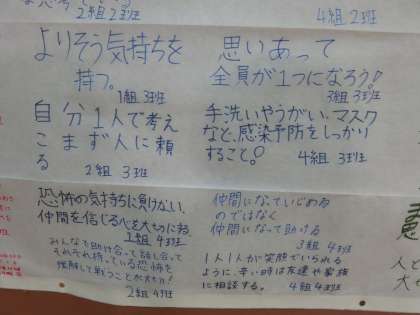 2組 2班
4組 2班
よりそう気持ちを
持つ。
1組 3班
思いあって
全員が1つになろう!
3組 3班
自分1人で考え
こまず人に頼
る
2組 3班
手洗いやうがい、マスク
など、感染予防をしっかり
すること。
4組 3班
恐怖の気持ちに負けない、
仲間を信じる心を大切にする
1組 4班
みんなで助け合って話し合って
それぞれ持っている恐怖を
理解して戦うことが大切!
2組 4班
仲間になっていじめる
のではなく
仲間になって助ける
3組 4班
1人1人が笑顔でいられる
ように、辛い時は友達や家族
に相談する。
4組 4班